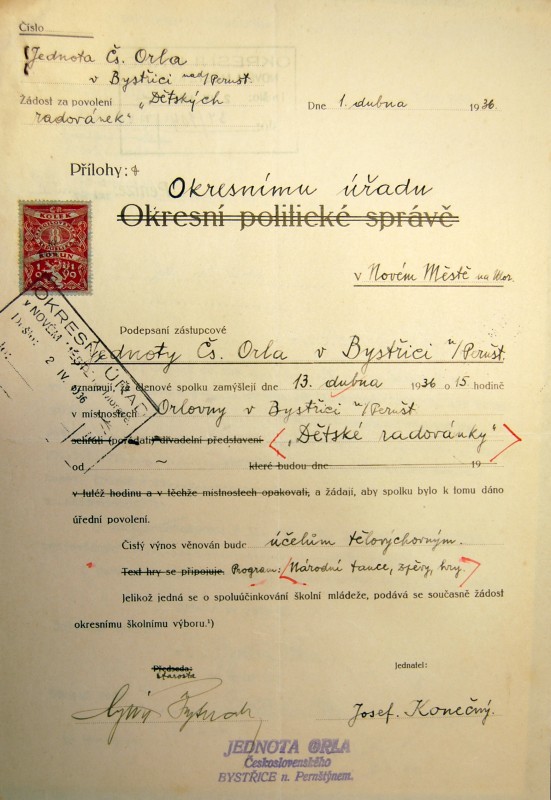 Číslo
Jednota Čs. Orla
v Bystřici nad/Peršt.
Žádost za povolení „Dětských
radovánek"
Dne 1. dubna 1936
Přílohy:
Okresnímu úřadu
Okresní politické správě
v Novém Městě na Mor.
ČS.
KOLEK
8
KORUN
1919
OKRESNÍ ÚŘAD
v NOVÉM MĚSTĚ
Došlo: 2 IV. 1936
Podepsaní zástupcové
Jednoty Čs. Orla v Bystřici n/Peršt.
oznamují, že členové spolku zamýšlejí dne 13. dubna 1936 o 15 hodině
v místnostech Orlovny v Bystřici n/Peršt
sehráti (pořádati) divadelní představení „Dětské radovánky"
od ~ které budou dne 19
v tutéž hodinu a v těchže místnostech opakovati, a žádají, aby spolku bylo k tomu dáno
úřední povolení.
Čistý výnos věnován bude účelům tělovýchovným.
Text hry se připojuje. Program: Národní tance, zpěvy, hry.
Jelikož jedná se o spoluúčinkování školní mládeže, podává se současně žádost
okresnímu školnímu výboru.¹)
Předseda:
starosta
Jednatel:
Josef. Konečný.
JEDNOTA ORLA
Československého
BYSTŘICE n. Pernštýnem.